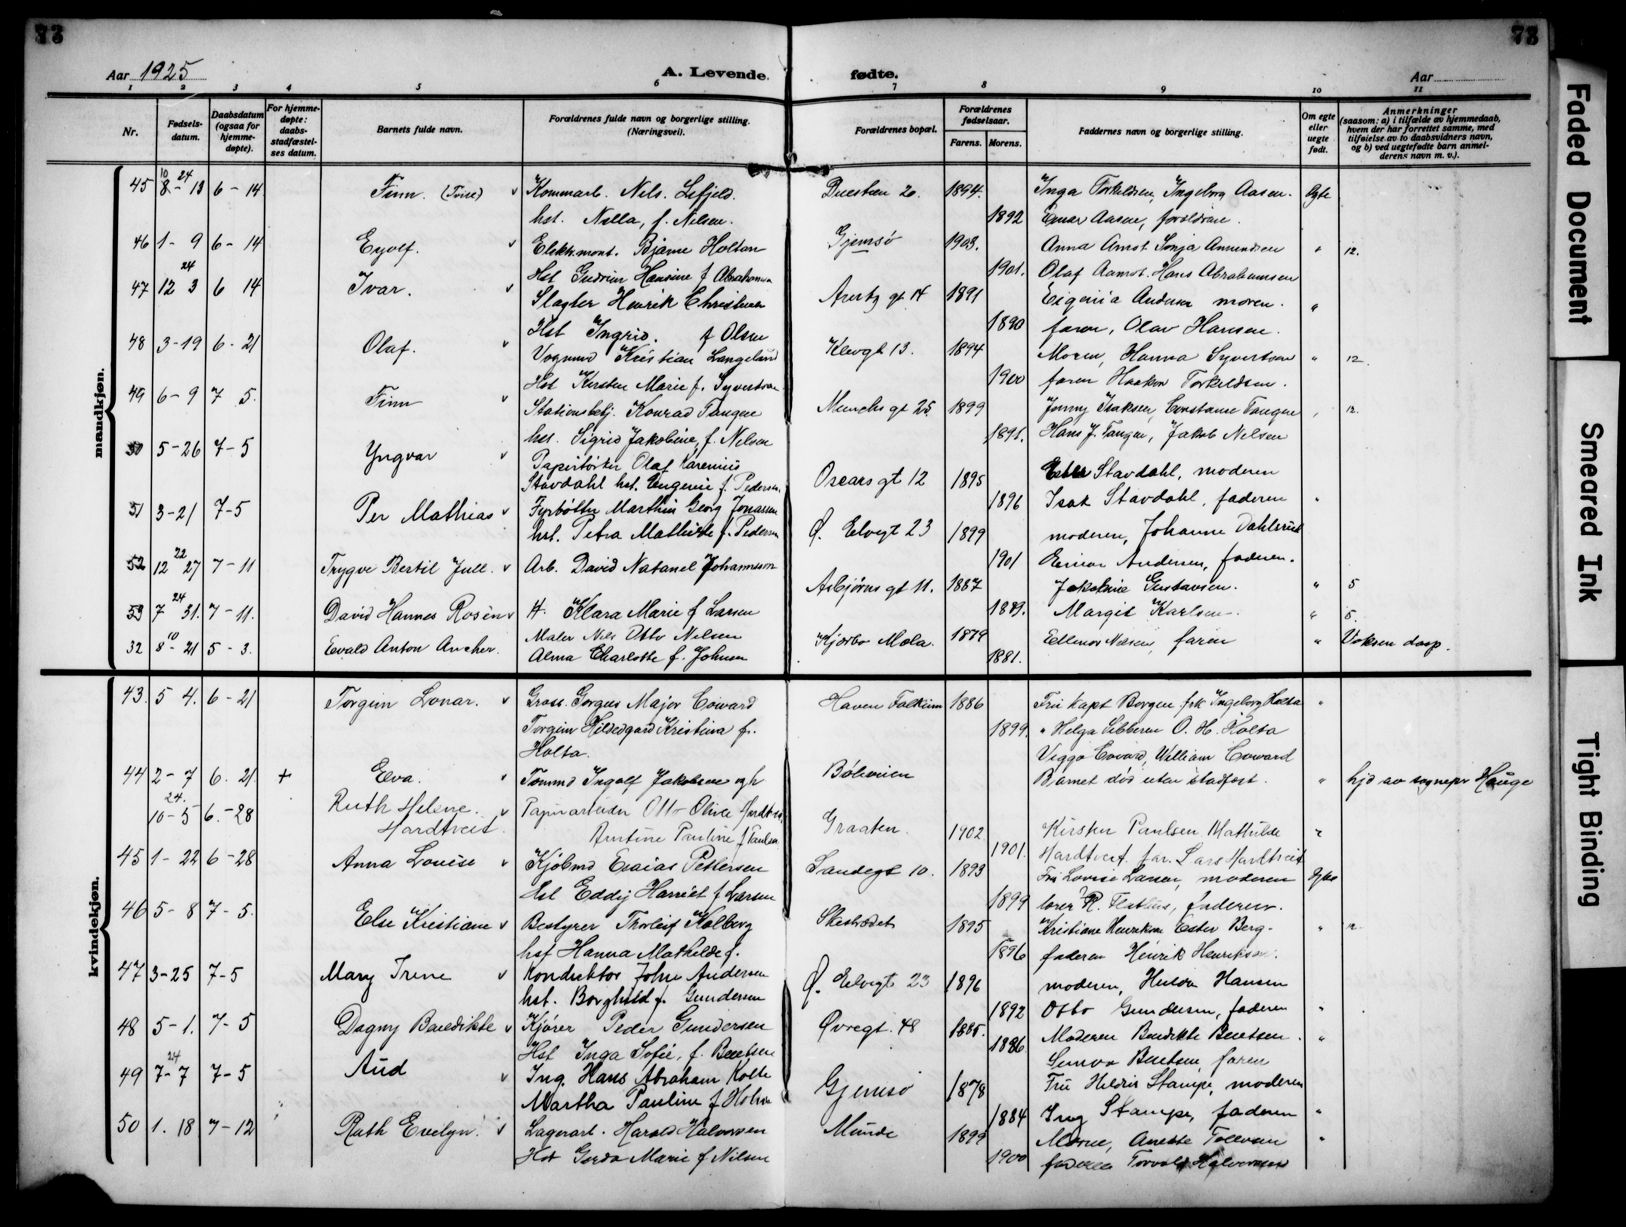 73
73
Aar 1925
A. Levende
fødte.
Aar
1 2 3 4 5 6 7 8 9 10 11
Nr.
Fødsels-
datum.
Daabsdatum
(ogsaa for
hjemme-
døpte).
For hjemme-
døpte:
daabs-
stadfæstel-
ses datum.
Barnets fulde navn.
Forældrenes fulde navn og borgerlige stilling.
(Næringsvei).
Forældrenes bopæl.
Forældrenes
fødselsaar.
Farens. Morens.
Faddernes navn og borgerlige stilling.
Om egte
eller
uegte
født.
Anmerkninger
(saasom: a) i tilfælde av hjemmedaab,
hvem der har forrettet samme, med
tilføielse av to daabsvidners navn,
og b) ved uegtefødte barn anmel-
derens navn m. v.).
mandkjøn.
45 10 24 8-18 6-14 Finn. Nils 1894. Inga Torkildsen, Ingeborg Aasen. Egte
hst. f. Nelsen. 1892 Einar Aasen, foreldrene.
46 1-9 6-14 Eyolf. Elektr.mont. Bjarne Holtan Gjemsø 1903. Anna Sonja Amundsen " 12.
Hst Gudrun Hansine f Abrahamsen 1901. Olaf Hans Abrahamsen
47 12 24 3 6 14 Ivar. Slagter Henrik Christensen gt 14 1891 Andersen moren. "
Hst Ingrid. f Olsen 1890 faren, Olav Hansen.
48 3-19 6-21 Olaf. Vognmd Kristian Langelund Klevgt 13. 1894 Moren, Hanna Syvertsen " 12
Hst Kirsten Marie f. Syvertsen 1900 faren Haakon Torkildsen.
49 6-9 7 5. Finn Stationsbetj. Konrad Tangen Munchs gt 25. 1899 Jenny Isaksen, Constanse Tangen " 12.
hst. Sigrid Jakobine, f. Nelsen 1891. Hans J. Tangen, Jakob Nelsen
50 5-26 7-5 Yngvar Papirtørker Olaf Karenius Oscars gt 12 1895 Stavdahl, moderen
Stavdahl hst. Eugenie f. Pedersen. 1896 Isak Stavdahl, faderen "
51 3-21 7-5 Per Mathias Fyrbøter Marthin Georg Jonassen Ø. Elvegt 23 1899 moderen, Johanne
hst. Petra Mathilde f. Pedersen 1901 Einar Andersen, faderen.
52 12 22 27 7-11 Trygve Bertil Juell. Arb. David Natanael Johannesson Asbjørns gt 11. 1887 Jakobine Gustavsen. " 5
53 7 24 31. 7-11. David Hannes Rosen H. Klara Marie f Larsen 1889. Margit Karlsen. " 5.
32 8 10 21 5-3. Evald Anton Ancher. Maler Nils Otto Nilsen Kjørbo Mæla. 1879 Ellenor Nilsen, faren " Voksen daap.
Alma Charlotte f. Johnsen 1881.
kvindekjøn.
43. 5 4. 6-21 Torgun Lonar. Gross. Gorgus Major Coward Haven Falkum 1886 Fru kapt Borgen frk Ingeborg Holta "
Torgun Hildegard Kristina f. 1899. " Helga Ebbesen O. H. Holta
Holta. Viggo Coward, William Coward
44 2-7 6. 21 + Eva. Tømmd Ingolf Jakobsen og h Bøleveien Barnet død uten stadfest. " hjd av sognepr Hauge
24. 10-5 6.-28 Ruth Helene Papirarbeider Otto Oliver Hardtveit Graaten. 1902 Kirsten Paulsen Mathilde "
Hardtveit. Pauline f Paulsen 1901. Hardtveit. far. Lars Hardtveit
45 1-22 6-28 Anna Louise Kjøbmd Esaias Pettersen Landegt 10. 1893 Fru Lovise Larsen, moderen Egte
Hst Eddy Harriet f Larsen 1899 lærer R. faderen.
46 5-8 7-5. Else Kristiane Bestyrer Thorleif Kolberg 1895 Kristiane Henriksen Ester Berg- " 12
hst Hanna Mathilde f. 1896 faderen Henrik Henriksen.
47 3-25 7-5 Mary Irene Konduktør John Andersen Ø. Elvegt 23 1896 moderen, Hulda Hansen
hst. Borghild f. Gundersen 1892 Otto Gundersen, faderen "
48 5-1. 7-5 Dagny Benedikte Kjører Peder Gundersen Øvregt. 48 1885. Moderen Benedikte Bentsen. "
Hst Inga Sofie, f. Bentsen 1886 Bentsen, faren
49 7 24 7 7-5 Aud Ing. Hans Abraham Kolte Gjemsø 1878 Fru Stampe, moderen
Martha Pauline f Holm 1884 Ing Stampe, faderen "
50 1. 18 7-12 Ruth Evelyn. Lagerarb. Harald Halvorsen Munde 1899 Moren, Anette "
Hst Gerda Marie f Nilsen 1900 faderen Torvald Halvorsen
Faded Document
Smeared Ink
Tight Binding